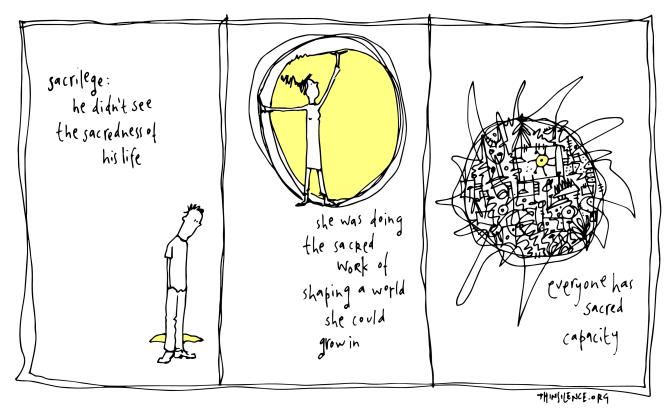 sacrilege:
he didn't see
the sacredness of
his life
she was doing
the sacred
work of
shaping a world
she could
grow in
everyone has
sacred
capacity
THINSILENCE.ORG